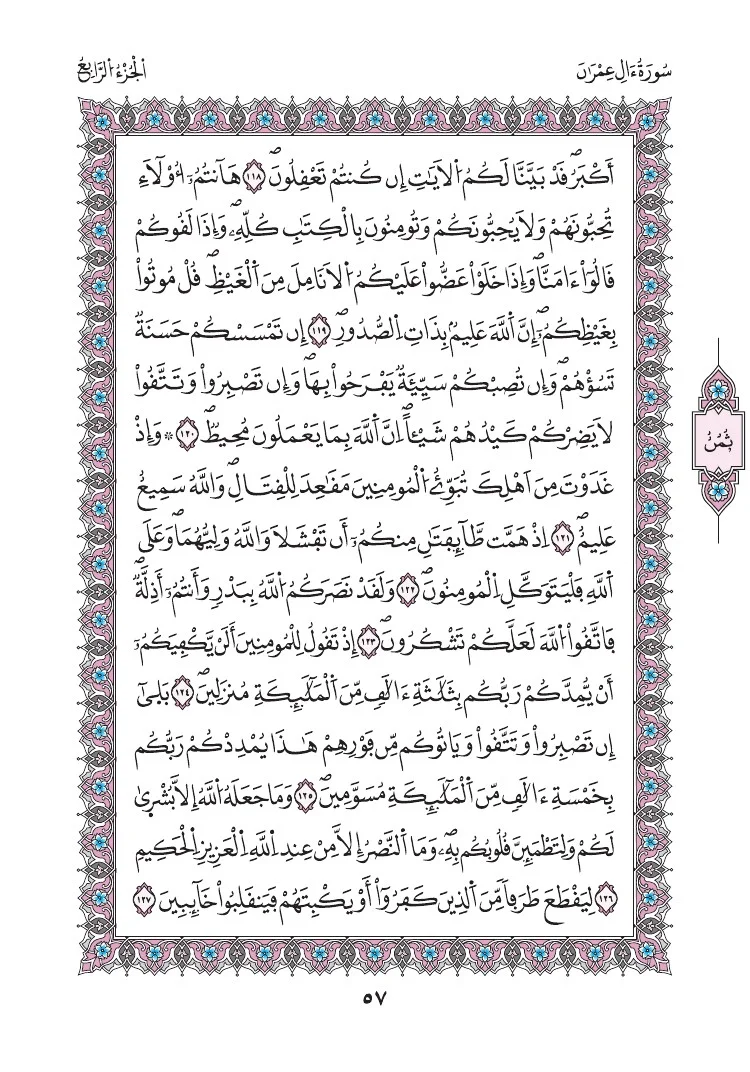 سُورَةُ ءَالِ عِمْرَانَ
اَلْجُزْءُ اَلرَّابِعُ
أَكْبَرُۖ قَدْ بَيَّنَّا لَكُمُ اُلَايَٰتِ إِن كُنتُمْ تَعْقِلُونَۖ ١١٨ هَآنتُمُۥٓ أُوْلَآءِ
تُحِبُّونَهُمْ وَلَا يُحِبُّونَكُمْ وَتُومِنُونَ بِالْكِتَٰبِ كُلِّهِۦۖ وَإِذَا لَقُوكُمْ
قَالُوٓاْ ءَامَنَّاۖ وَإِذَا خَلَوْاْ عَضُّواْ عَلَيْكُمُ اُلَانَامِلَ مِنَ اَلْغَيْظِۖ قُلْ مُوتُواْ
بِغَيْظِكُمُۥٓۖ إِنَّ اَللَّهَ عَلِيمُۢ بِذَاتِ اِلصُّدُورِۖ ١١٩ إِن تَمْسَسْكُمْ حَسَنَةٌ
تَسُؤْهُمْۖ وَإِن تُصِبْكُمْ سَيِّئَةٌ يَفْرَحُواْ بِهَاۖ وَإِن تَصْبِرُواْ وَتَتَّقُواْ
لَا يَضِرْكُمْ كَيْدُهُمْ شَيْـًٔاۖ اِنَّ اَللَّهَ بِمَا يَعْمَلُونَ مُحِيطٌۖ ١٢٠ ۞ وَإِذْ
غَدَوْتَ مِنَ اَهْلِكَ تُبَوِّئُ اُلْمُومِنِينَ مَقَٰعِدَ لِلْقِتَالِۖ وَاللَّهُ سَمِيعٌ
عَلِيمٌۖ ١٢١ اِذْ هَمَّت طَّآئِفَتَٰنِ مِنكُمُۥٓ أَن تَفْشَلَا وَاللَّهُ وَلِيُّهُمَاۖ وَعَلَى
اَللَّهِ فَلْيَتَوَكَّلِ اِلْمُومِنُونَۖ ١٢٢ وَلَقَدْ نَصَرَكُمُ اُللَّهُ بِبَدْرٍ وَأَنتُمُۥٓ أَذِلَّةٌۖ
فَاتَّقُواْ اُللَّهَ لَعَلَّكُمْ تَشْكُرُونَۖ ١٢٣ إِذْ تَقُولُ لِلْمُومِنِينَ أَلَنْ يَّكْفِيَكُمُۥٓ
أَنْ يُّمِدَّكُمْ رَبُّكُم بِثَلَٰثَةِ ءَالَٰفٍ مِّنَ اَلْمَلَٰٓئِكَةِ مُنزَلِينَۖ ١٢٤ بَلَىٰٓ
إِن تَصْبِرُواْ وَتَتَّقُواْ وَيَاتُوكُم مِّن فَوْرِهِمْ هَٰذَا يُمْدِدْكُمْ رَبُّكُم
بِخَمْسَةِ ءَالَٰفٍ مِّنَ اَلْمَلَٰٓئِكَةِ مُسَوَّمِينَۖ ١٢٥ وَمَا جَعَلَهُ اُللَّهُ إِلَّا بُشْر۪ىٰ
لَكُمْ وَلِتَطْمَئِنَّ قُلُوبُكُم بِهِۦۖ وَمَا اَلنَّصْرُ إِلَّا مِنْ عِندِ اِللَّهِ اِلْعَزِيزِ اِلْحَكِيمِ
١٢٦ لِيَقْطَعَ طَرَفاً مِّنَ اَلذِينَ كَفَرُوٓاْ أَوْ يَكْبِتَهُمْ فَيَنقَلِبُواْ خَآئِبِينَۖ ١٢٧
ثُمُنُ
٥٧